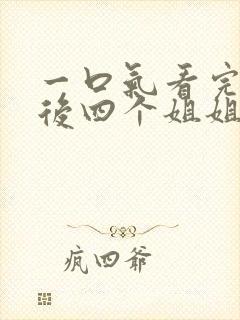 一口氣看完
後四个姐姐
疯四爷